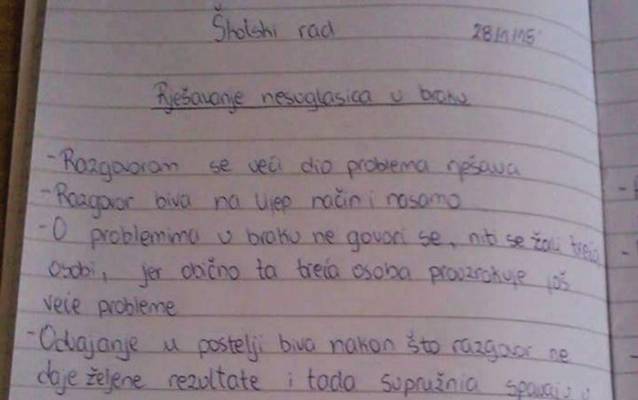 Školski rad 28/1/15
Rješavanje nesuglasica u braku
- Razgovorom se veći dio problema rješava
- Razgovor biva na lijep način i nasamo
- O problemima u braku ne govori se, niti se žali trećoj
osobi, jer obično ta treća osoba prouzrokuje još
veće probleme
- Odvajanje u postelji biva nakon što razgovor ne
daje željene rezultate i tada supružnia spavaju u